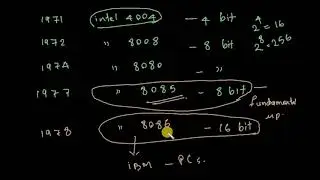 1971 intel 4004 - 4 bit 2^4 = 16
1972 " 8008 - 8 bit 2^8 = 256
1974 " 8080 - "
1977 " 8085 - 8 bit
fundamental
μp.
1978 " 8086 - 16 bit
iBM - PCs.